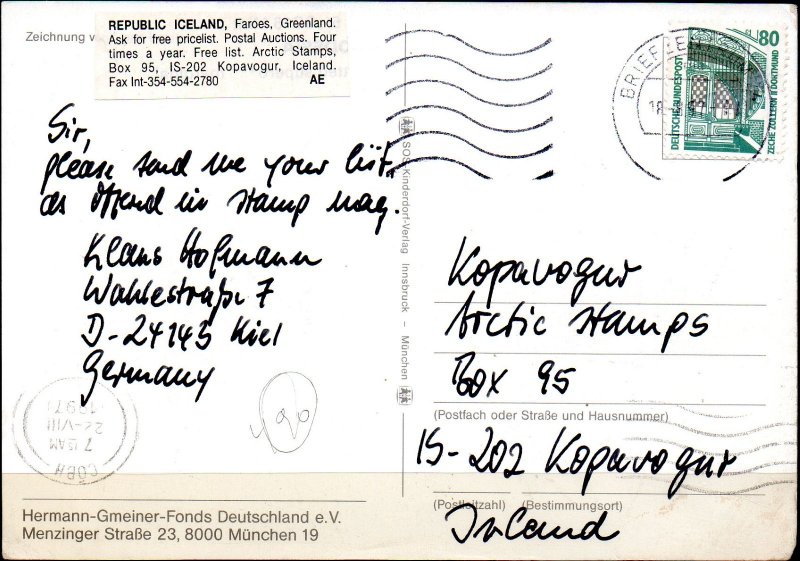 Zeichnung v
REPUBLIC ICELAND, Faroes, Greenland.
Ask for free pricelist. Postal Auctions. Four
times a year. Free list. Arctic Stamps,
Box 95, IS-202 Kopavogur, Iceland.
Fax Int-354-554-2780 AE
Sir,
please send me your list,
as offerd in stamp mag.
Klaus Hofmann
Wahlestraße 7
D-24143 Kiel
Germany
190
COBH
7 15AM
-VIII
1997
Hermann-Gmeiner-Fonds Deutschland e.V.
Menzinger Straße 23, 8000 München 19
SOS-Kinderdorf-Verlag Innsbruck – München
BRIEFZE
80
DEUTSCHE BUNDESPOST
ZECHE ZOLLERN II DORTMUND
Kopavogur
Arctic Stamps
Box 95
(Postfach oder Straße und Hausnummer)
IS-202 Kopavogur
(Postleitzahl) (Bestimmungsort)
Irland